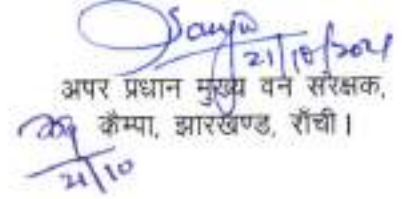 Sanjiv
21/10/2021
अपर प्रधान मुख्य वन संरक्षक,
कैम्पा, झारखण्ड, राँची।
21/10